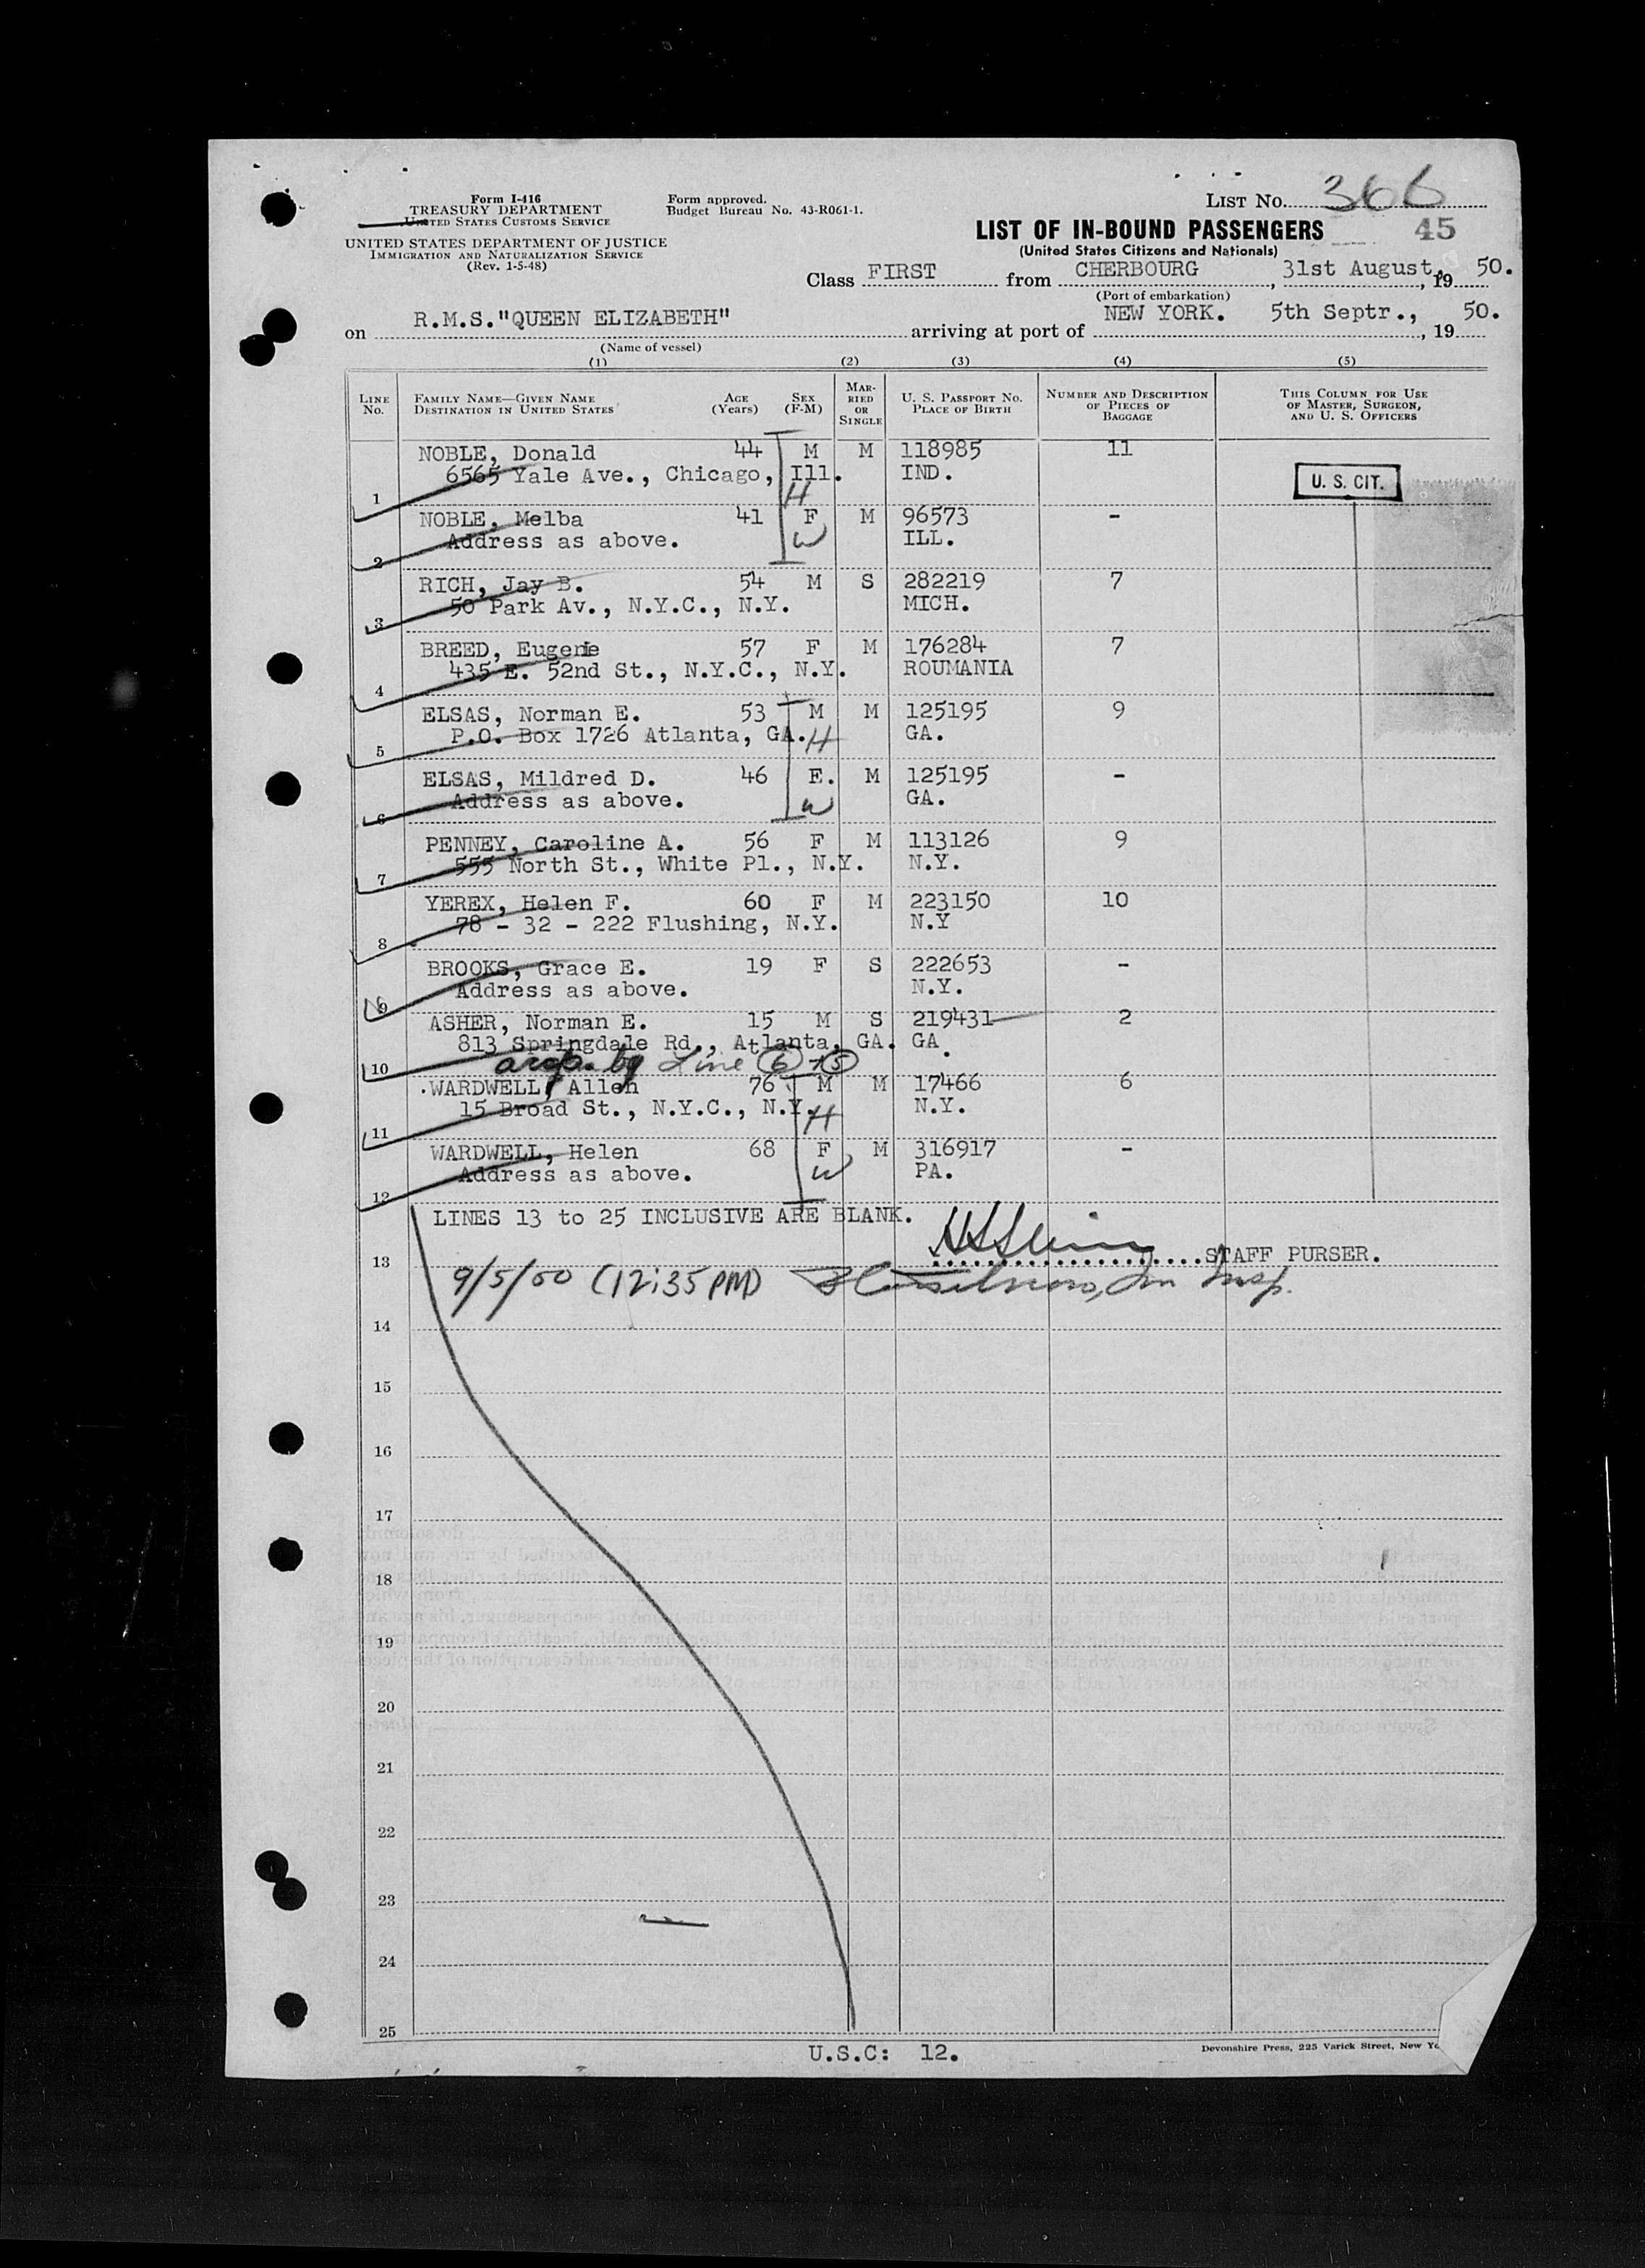 Form I-416
TREASURY DEPARTMENT
UNITED STATES CUSTOMS SERVICE
UNITED STATES DEPARTMENT OF JUSTICE
IMMIGRATION AND NATURALIZATION SERVICE
(Rev. 1-5-48)
Form approved.
Budget Bureau No. 43-R061-1.
LIST NO. 366
LIST OF IN-BOUND PASSENGERS 45
(United States Citizens and Nationals)
Class FIRST from CHERBOURG, 31st August, 19 50.
(Port of embarkation)
on R.M.S."QUEEN ELIZABETH" arriving at port of NEW YORK. 5th Septr., 19 50.
(Name of vessel)
(1) (2) (3) (4) (5)
LINE NO. FAMILY NAME—GIVEN NAME DESTINATION IN UNITED STATES AGE (Years) SEX (F-M) MARRIED OR SINGLE U. S. PASSPORT NO. PLACE OF BIRTH NUMBER AND DESCRIPTION OF PIECES OF BAGGAGE THIS COLUMN FOR USE OF MASTER, SURGEON, AND U. S. OFFICERS
NOBLE, Donald 44 M M 118985 11
1 6565 Yale Ave., Chicago, Ill. IND. U. S. CIT.
H
NOBLE, Melba 41 F M 96573 -
2 Address as above. W ILL.
RICH, Jay B. 54 M S 282219 7
3 50 Park Av., N.Y.C., N.Y. MICH.
BREED, Eugenie 57 F M 176284 7
4 435 E. 52nd St., N.Y.C., N.Y. ROUMANIA
ELSAS, Norman E. 53 M M 125195 9
5 P.O. Box 1726 Atlanta, GA. H GA.
ELSAS, Mildred D. 46 E. M 125195 -
6 Address as above. W GA.
PENNEY, Caroline A. 56 F M 113126 9
7 555 North St., White Pl., N.Y. N.Y.
YEREX, Helen F. 60 F M 223150 10
8 78 - 32 - 222 Flushing, N.Y. N.Y
BROOKS, Grace E. 19 F S 222653 -
9 Address as above. N.Y.
ASHER, Norman E. 15 M S 219431 2
10 813 Springdale Rd., Atlanta, GA. GA.
by Line 6 + 5
WARDWELL, Allen 76 M M 17466 6
11 15 Broad St., N.Y.C., N.Y. H N.Y.
WARDWELL, Helen 68 F M 316917 -
12 Address as above. W PA.
LINES 13 to 25 INCLUSIVE ARE BLANK.
13 STAFF PURSER.
9/5/50 (12:35 PM) Imm Insp.
14
15
16
17
18
19
20
21
22
23
24
25
U.S.C: 12.
Devonshire Press, 225 Varick Street, New Yo